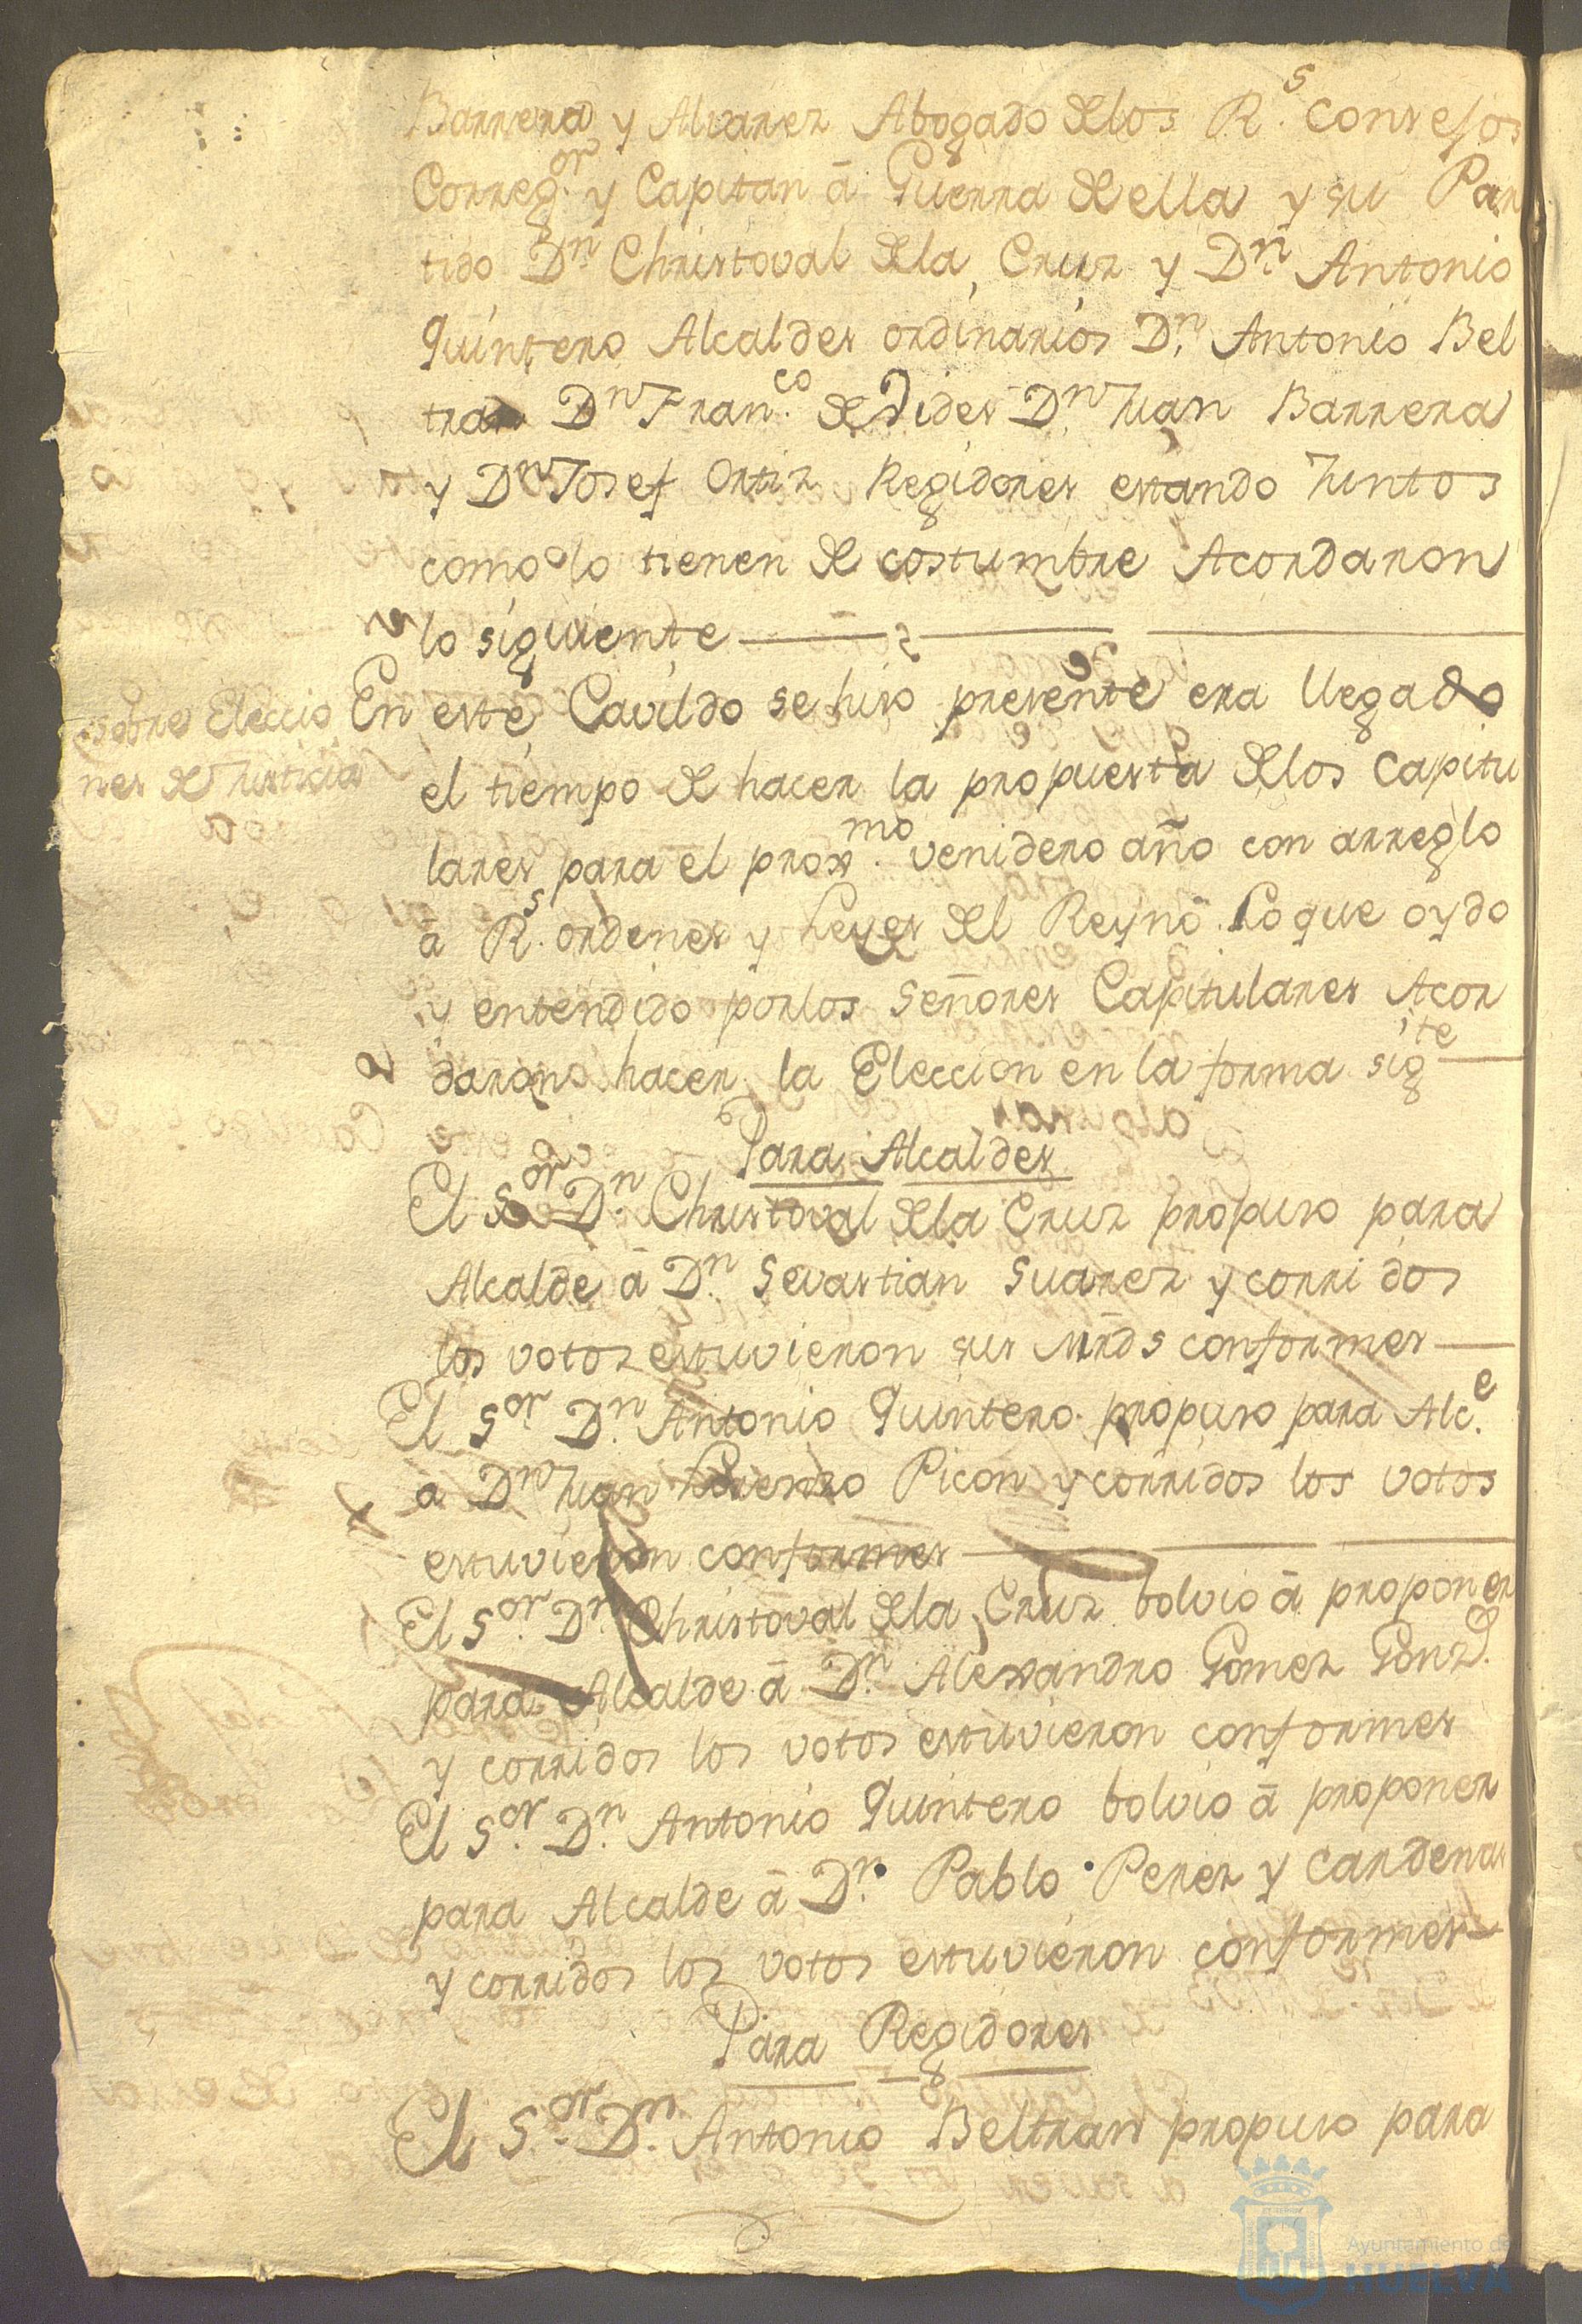 Barrera y Alvarez Abogado de los R.s Consejos
Correg.or y Capitan â Guerra de ella y su Par
tido D.n Christoval de la Cruz y D.n Antonio
Quintero Alcaldes ordinarios D.n Antonio Bel
tran D.n Fran.co de Vides D.n Juan Barrera
y D.n Josef Ortiz Regidores estando Juntos
como lo tienen de costumbre Acordaron
lo siguiente
Sobre Eleccio
nes de Justicia
En este Cavildo se hiso presente era llegado
el tiempo de hacer la propuesta de los Capitu
lares para el prox.mo venidero año con arreglo
â R.s ordenes y Leyes del Reyno. Lo que oydo
y entendido por los Señores Capitulares Acor
daron hacer la Eleccion en la forma sig.te
Para Alcaldes
El S.or D.n Christoval de la Cruz propuso para
Alcalde â D.n Sevastian Suarez y corridos
los votos estuvieron sus Mrds conformes
El S.or D.n Antonio Quintero propuso para Alc.e
a D.n Juan Lorenzo Picon y corridos los votos
estuvieron conformes
El S.or D.n Christoval de la Cruz bolvio â proponer
para Alcalde â D.n Alexandro Gomez Gonz.
y corridos los votos estuvieron conformes
El S.or D.n Antonio Quintero bolvio â proponer
para Alcalde â D.n Pablo Perez y Cardenas
y corridos los votos estuvieron conformes
Para Regidores
El S.or D.n Antonio Beltran propuso para
Ayuntamiento de
HUELVA